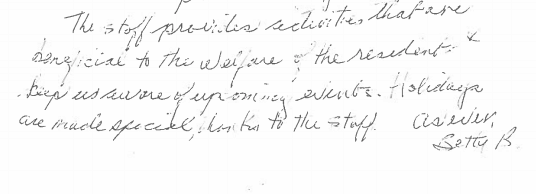 The staff provides activities that are
beneficial to the welfare of the residents &
keep us aware of upcoming events. Holidays
are made special, thanks to the staff. As ever,
Betty B.